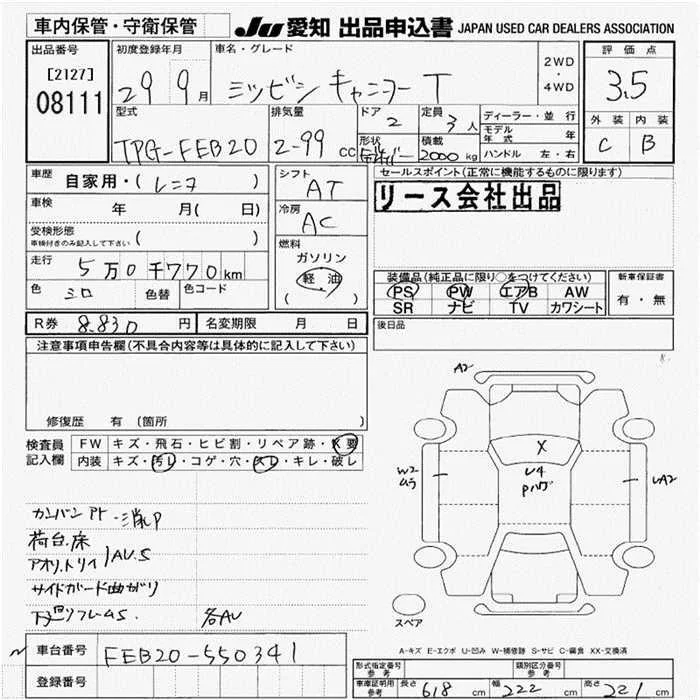 車内保管・守衛保管
JU 愛知 出品申込書 JAPAN USED CAR DEALERS ASSOCIATION
出品番号
[2127]
08111
初度登録年月
29 9月
車名・グレード
ミツビシ キャンター T
2WD
・
4WD
評価点
3.5
外装 内装
C B
型式
TPG-FEB20
排気量
2-99 cc
ドア
2
定員
3人
形状
積載
2000kg
ディーラー・並行
モデル年式 年
ハンドル 左・右
車歴
自家用・(レンタ )
車検 年 月( 日)
受検形態
車検付きのみ記入して下さい ( )
走行
5万0千770km
色 シロ 色替 色コード
シフト
AT
冷房
AC
燃料
ガソリン
軽油
( )
セールスポイント(正常に機能するものに限ります)
リース会社出品
装備品(純品に限り○をつけてください)
PS PW エアB AW
SR ナビ TV カワシート
新車保証書
有・無
R券 8.830円 名変期限 月 日
後日品
注意事項申告欄(不具合内容等は具体的に記入して下さい)
修復歴 有 (箇所 )
検査員記入欄
FW キズ・飛石・ヒビ割・リペア跡・X要
内装 キズ・汚レ・コゲ・穴・スレ・キレ・破レ
カンバンアト・消しP
荷台.床
アオリ.トリイ AU.S
サイドガード曲がり
下廻りフレームS.
各AU
A2
X
U4
Pハゲ
W2
ムラ
UA2
スペア
A-キズ E-エクボ U-凹み W-補修跡 S-サビ C-腐食 XX-交換済
車台番号 FEB20-550341
登録番号
形式指定番号
参考
類別区分番号
参考
車庫証明用
参考
長さ 618 cm 幅 222 cm 高さ 221 cm